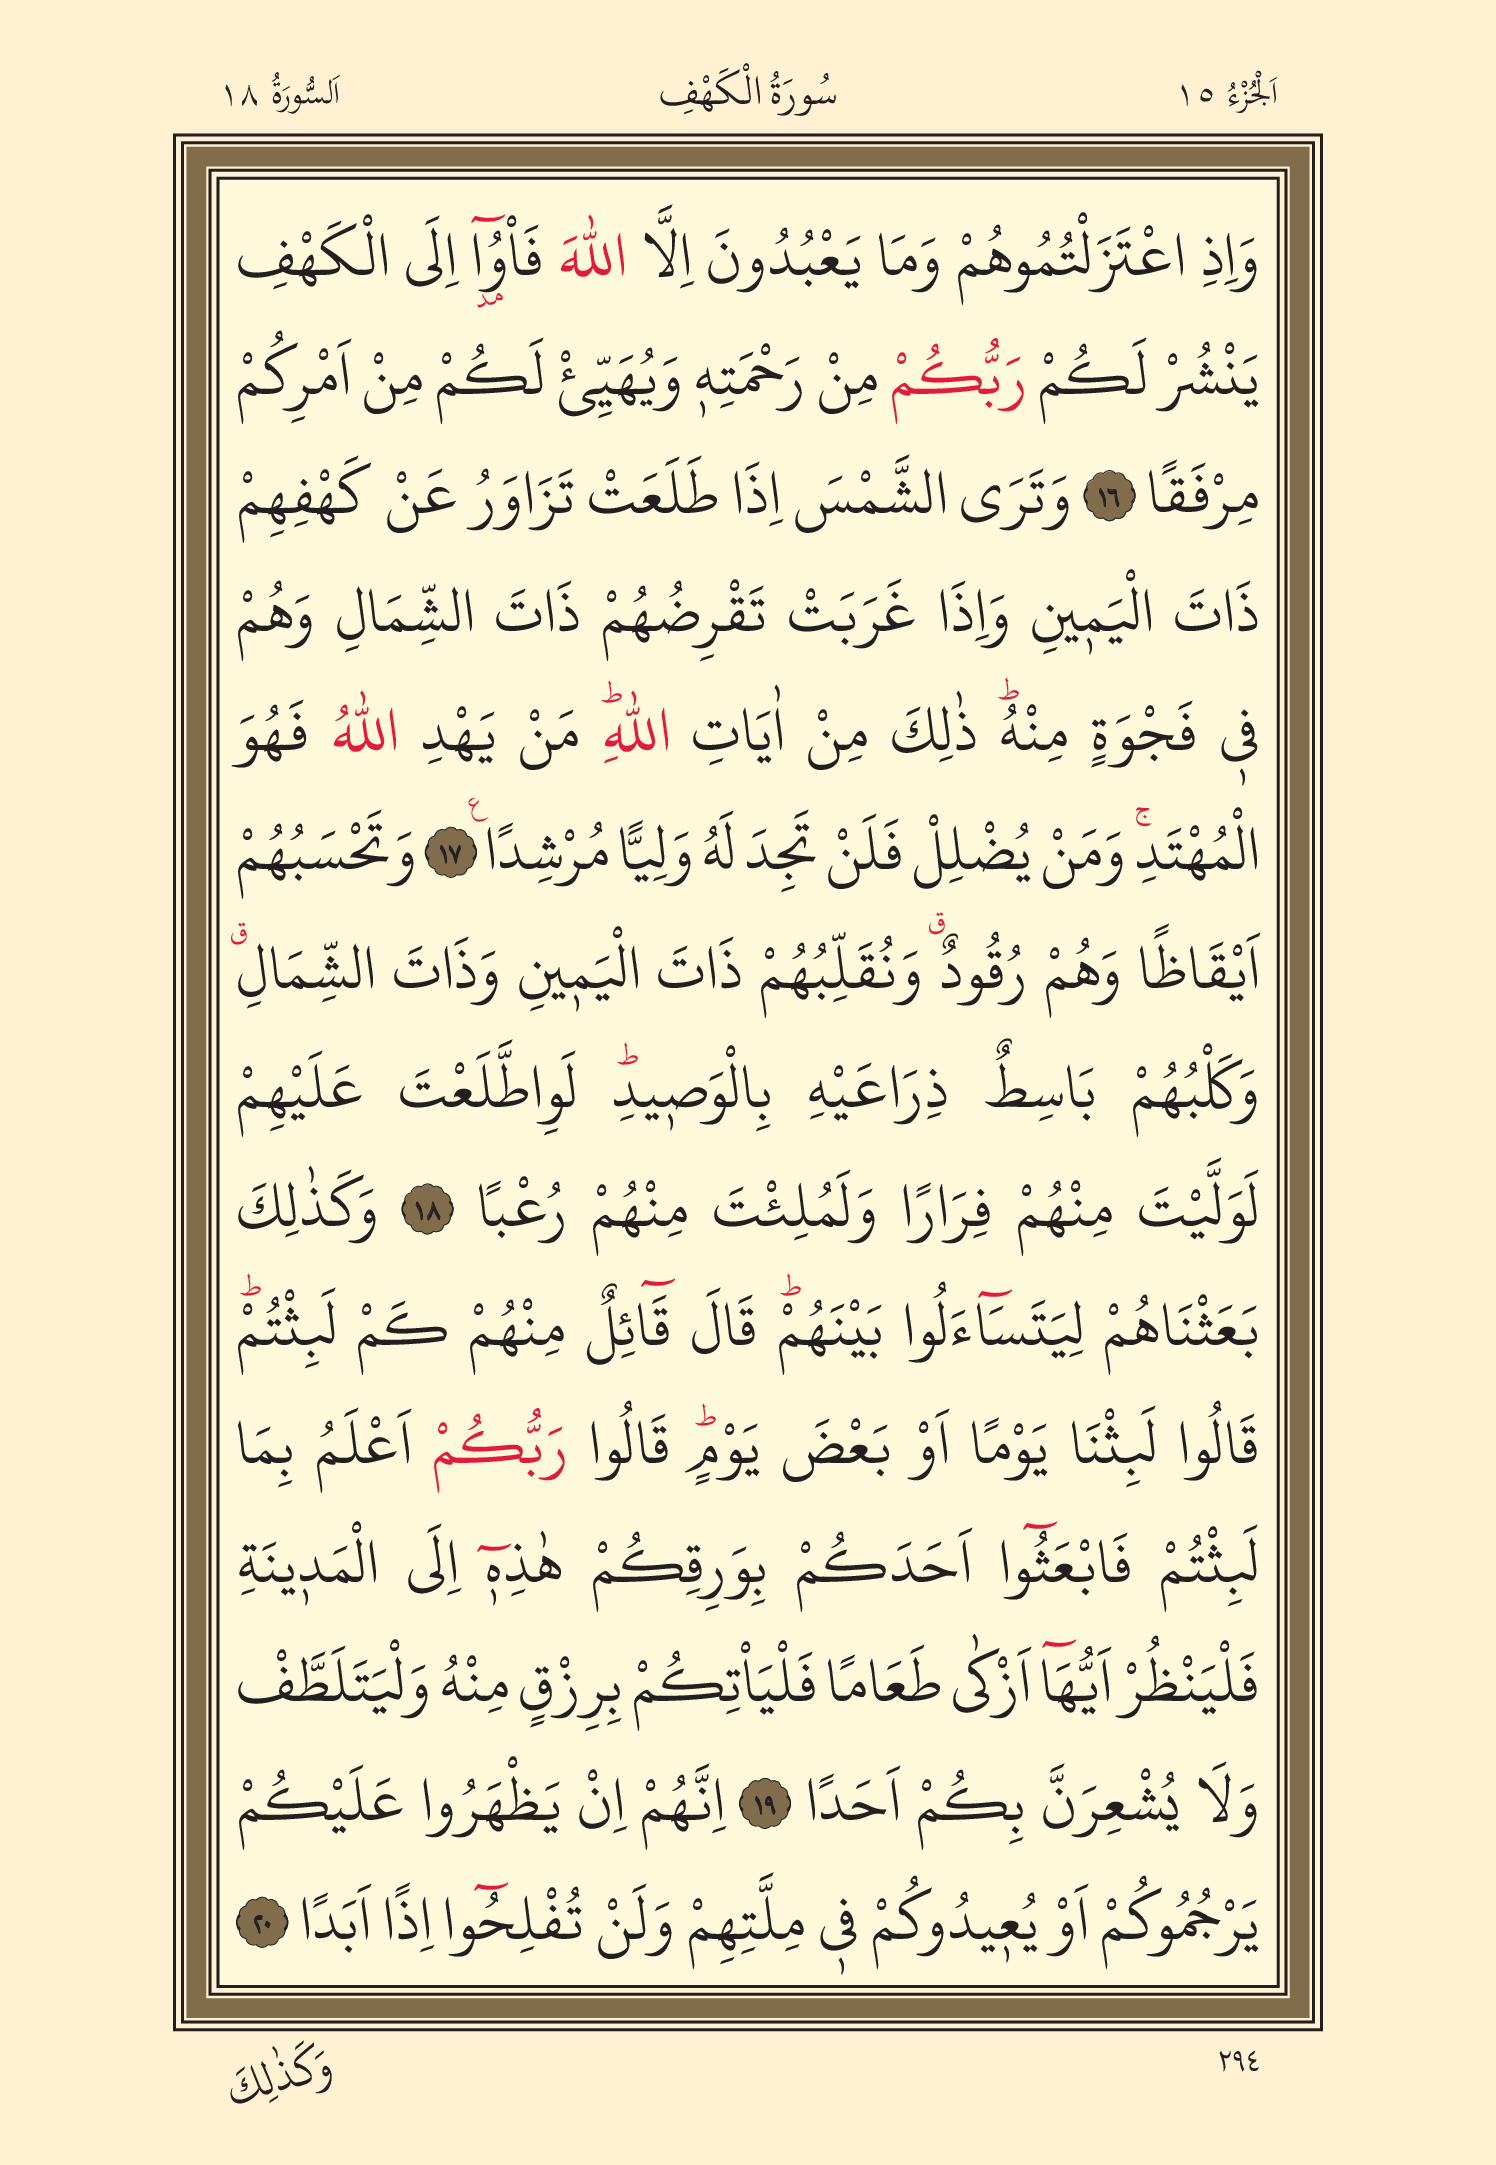 اَلْجُزْءُ ١٥
سُورَةُ الْكَهْفِ
اَلسُّورَةُ ١٨
وَاِذِ اعْتَزَلْتُمُوهُمْ وَمَا يَعْبُدُونَ اِلَّا اللّٰهَ فَاْوُٓا اِلَى الْكَهْفِ
مد
يَنْشُرْ لَكُمْ رَبُّكُمْ مِنْ رَحْمَتِهٖ وَيُهَيِّئْ لَكُمْ مِنْ اَمْرِكُمْ
مِرْفَقًا ١٦ وَتَرَى الشَّمْسَ اِذَا طَلَعَتْ تَزَاوَرُ عَنْ كَهْفِهِمْ
ذَاتَ الْيَمٖينِ وَاِذَا غَرَبَتْ تَقْرِضُهُمْ ذَاتَ الشِّمَالِ وَهُمْ
فٖى فَجْوَةٍ مِنْهُ ط ذٰلِكَ مِنْ اٰيَاتِ اللّٰهِ ط مَنْ يَهْدِ اللّٰهُ فَهُوَ
الْمُهْتَدِ ج وَمَنْ يُضْلِلْ فَلَنْ تَجِدَ لَهُ وَلِيًّا مُرْشِدًا ع ١٧ وَتَحْسَبُهُمْ
اَيْقَاظًا وَهُمْ رُقُودٌ ق وَنُقَلِّبُهُمْ ذَاتَ الْيَمٖينِ وَذَاتَ الشِّمَالِ ق
وَكَلْبُهُمْ بَاسِطٌ ذِرَاعَيْهِ بِالْوَصٖيدِ ط لَوِاطَّلَعْتَ عَلَيْهِمْ
لَوَلَّيْتَ مِنْهُمْ فِرَارًا وَلَمُلِئْتَ مِنْهُمْ رُعْبًا ١٨ وَكَذٰلِكَ
بَعَثْنَاهُمْ لِيَتَسَٓاءَلُوا بَيْنَهُمْ ط قَالَ قَٓائِلٌ مِنْهُمْ كَمْ لَبِثْتُمْ ط
قَالُوا لَبِثْنَا يَوْمًا اَوْ بَعْضَ يَوْمٍ ط قَالُوا رَبُّكُمْ اَعْلَمُ بِمَا
لَبِثْتُمْ فَابْعَثُٓوا اَحَدَكُمْ بِوَرِقِكُمْ هٰذِهٖٓ اِلَى الْمَدٖينَةِ
فَلْيَنْظُرْ اَيُّهَٓا اَزْكٰى طَعَامًا فَلْيَاْتِكُمْ بِرِزْقٍ مِنْهُ وَلْيَتَلَطَّفْ
وَلَا يُشْعِرَنَّ بِكُمْ اَحَدًا ١٩ اِنَّهُمْ اِنْ يَظْهَرُوا عَلَيْكُمْ
يَرْجُمُوكُمْ اَوْ يُعٖيدُوكُمْ فٖى مِلَّتِهِمْ وَلَنْ تُفْلِحُٓوا اِذًا اَبَدًا ٢٠
٢٩٤
وَكَذٰلِكَ